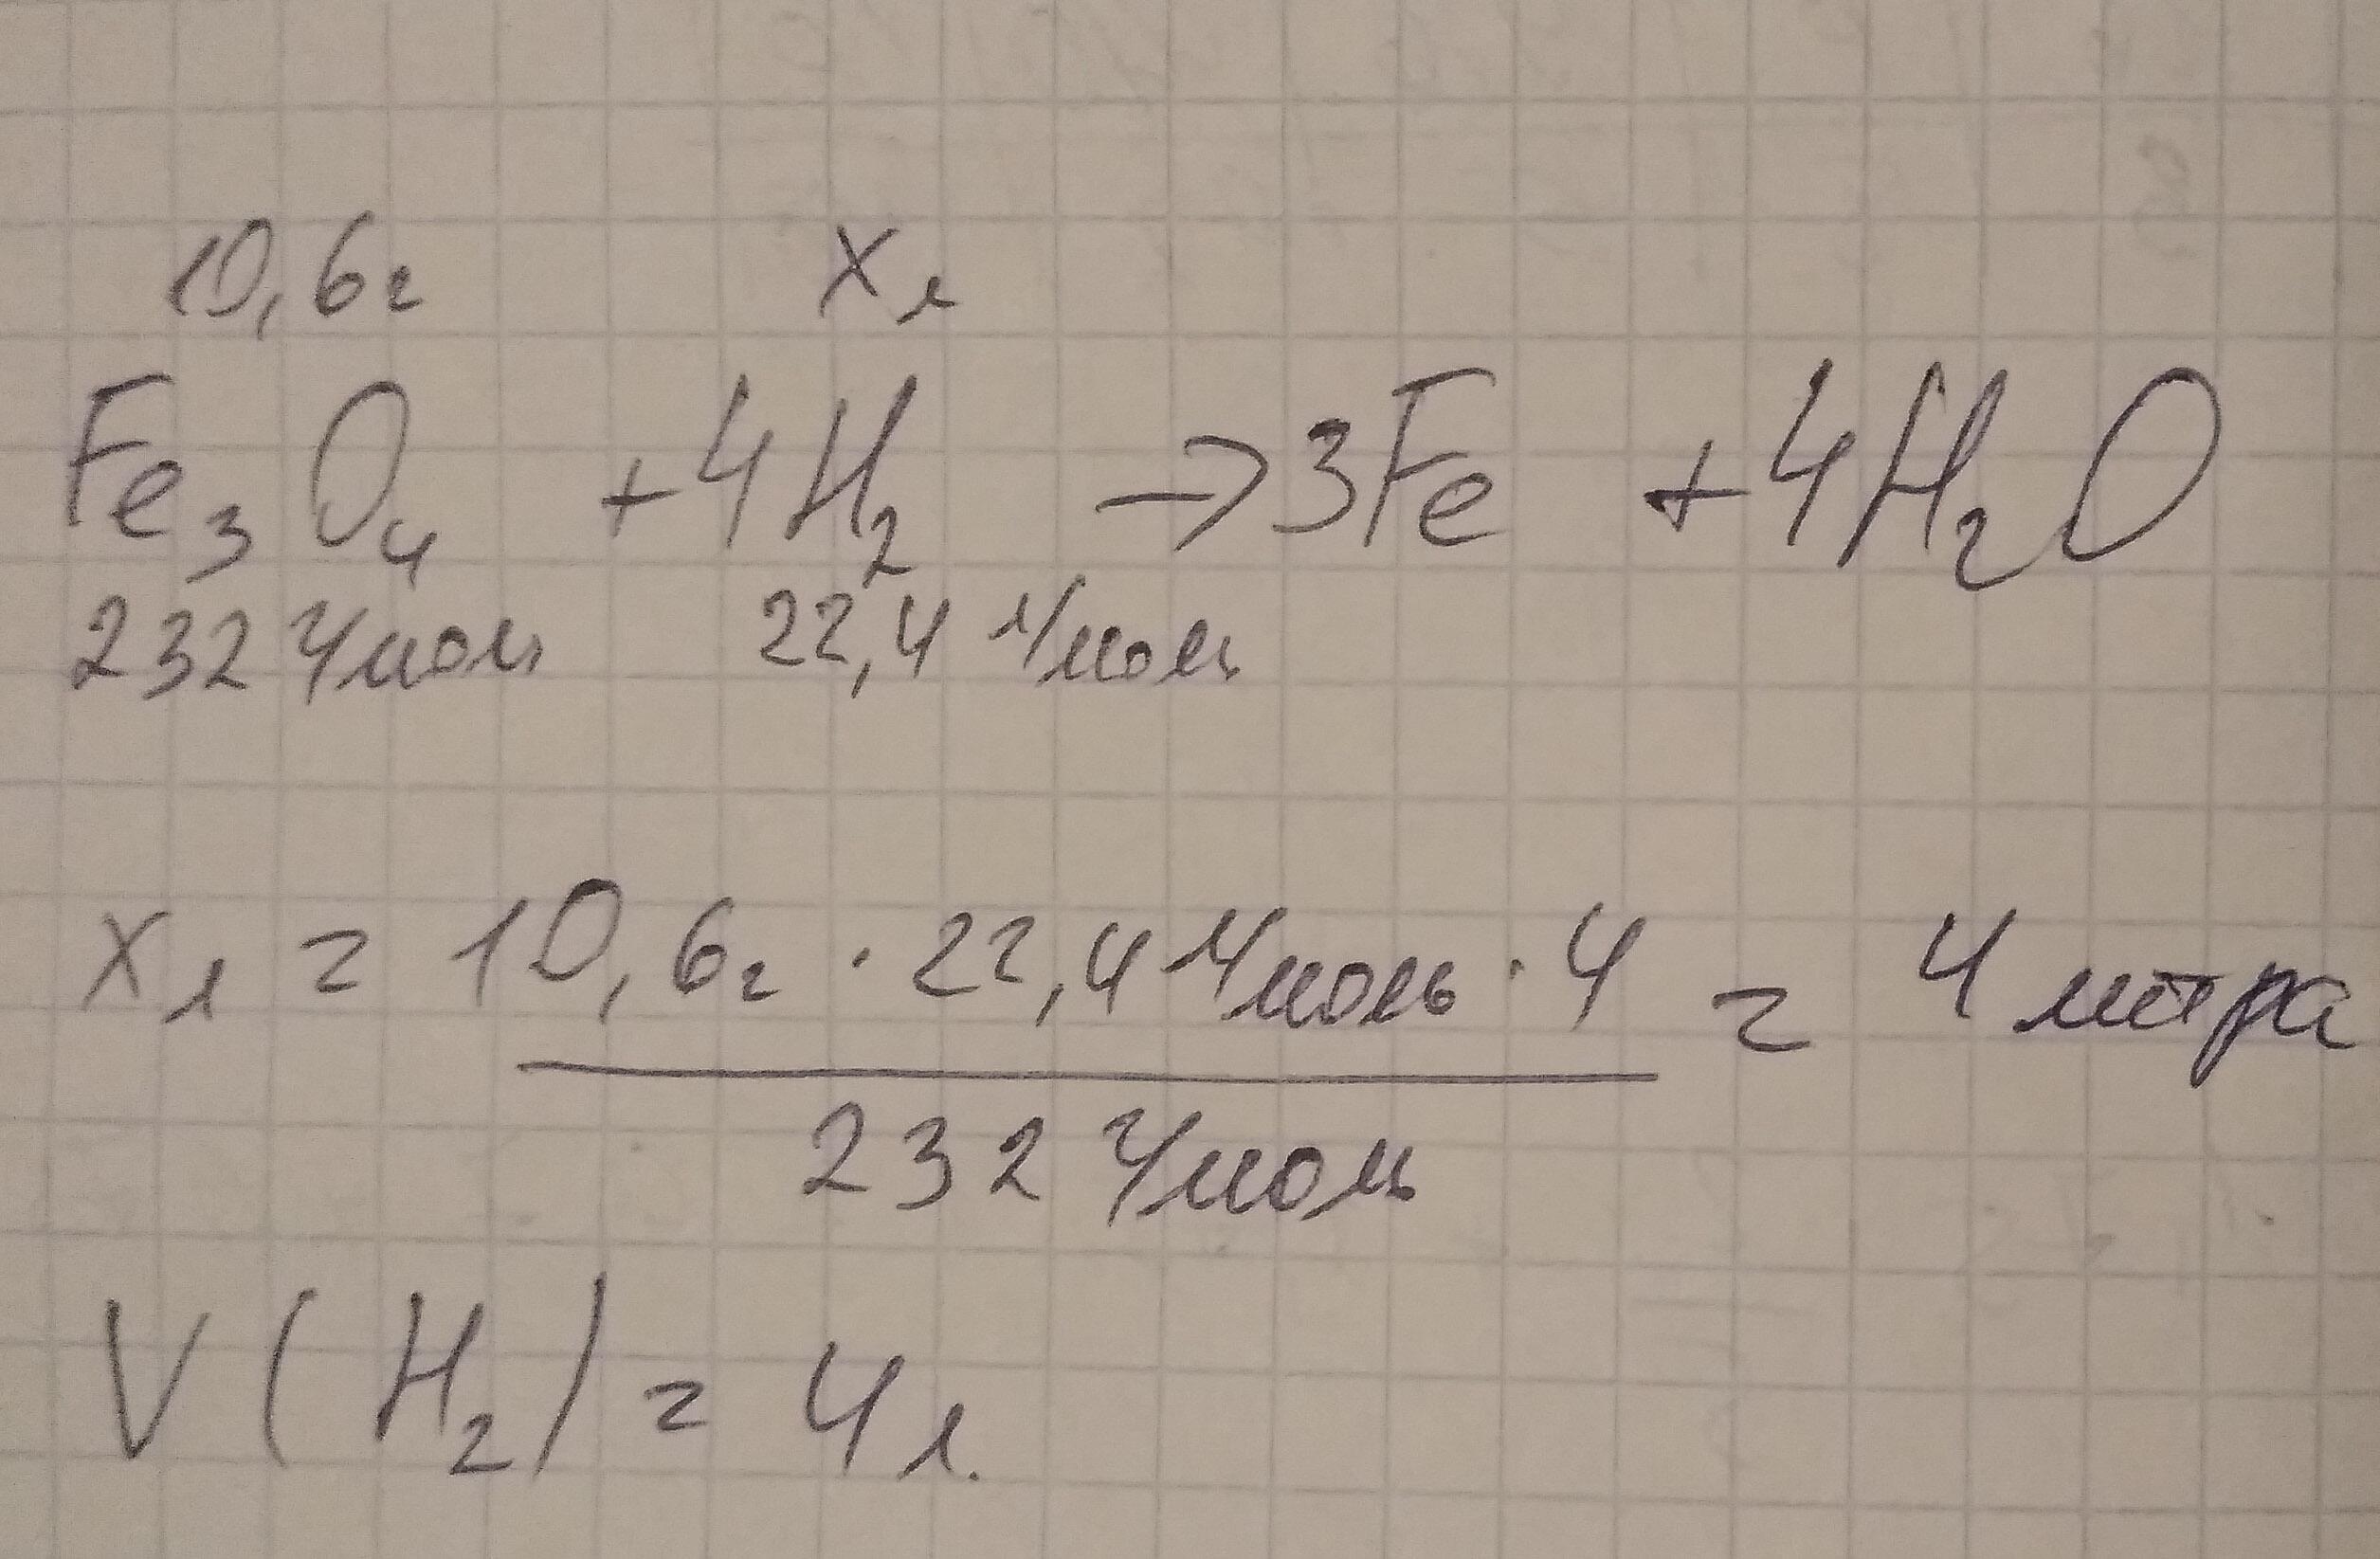 10,6г xл
Fe₃O₄ +4H₂ →3Fe +4H₂O
232 г/моль 22,4 л/моль
xл = 10,6г · 22,4 л/моль · 4 = 4 литра
232 г/моль
V(H₂) = 4л.